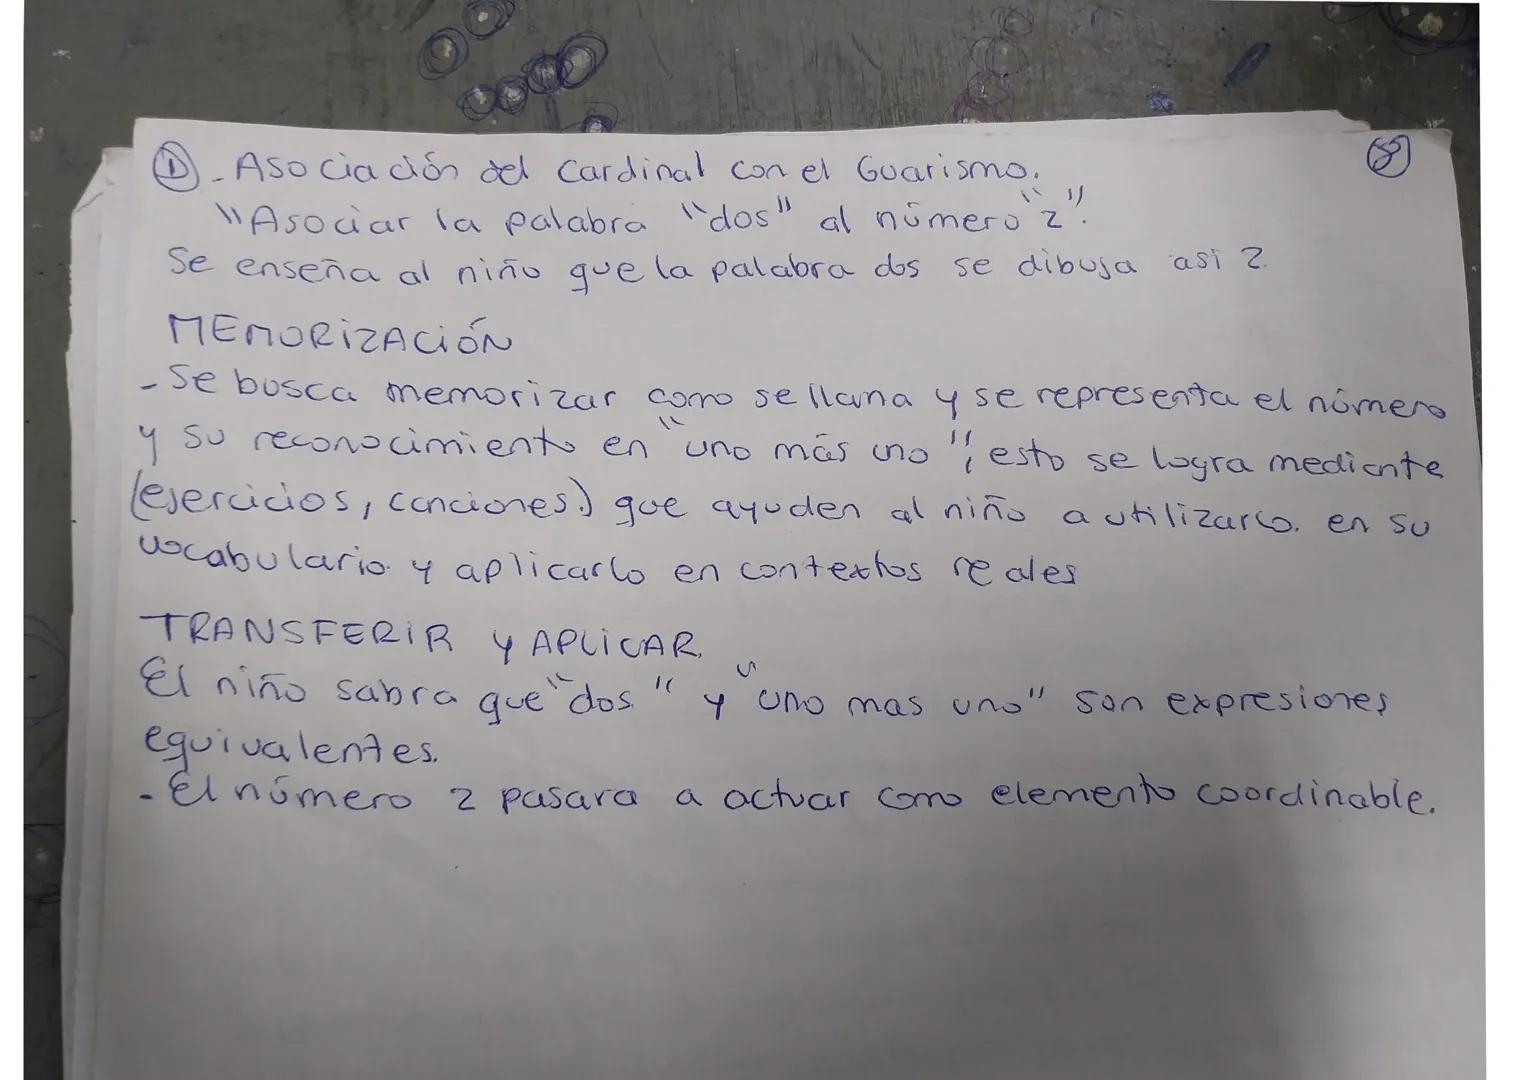 ①- Asociación del Cardinal con el Guarismo.
"Asociar la palabra "dos" al número "2".
Se enseña al niño que la palabra dos se dibuja asi 2.
MEMORIZACIÓN
- Se busca memorizar como se llama y se representa el número
y su reconocimiento en "uno más uno", esto se logra mediante
(ejercicios, canciones.) que ayuden al niño a utilizarlo. en su
vocabulario y aplicarlo en contextos reales
TRANSFERIR Y APLICAR.
El niño sabra que "dos" y "uno mas uno" son expresiones
equivalentes.
- El número 2 pasara a actuar como elemento coordinable.